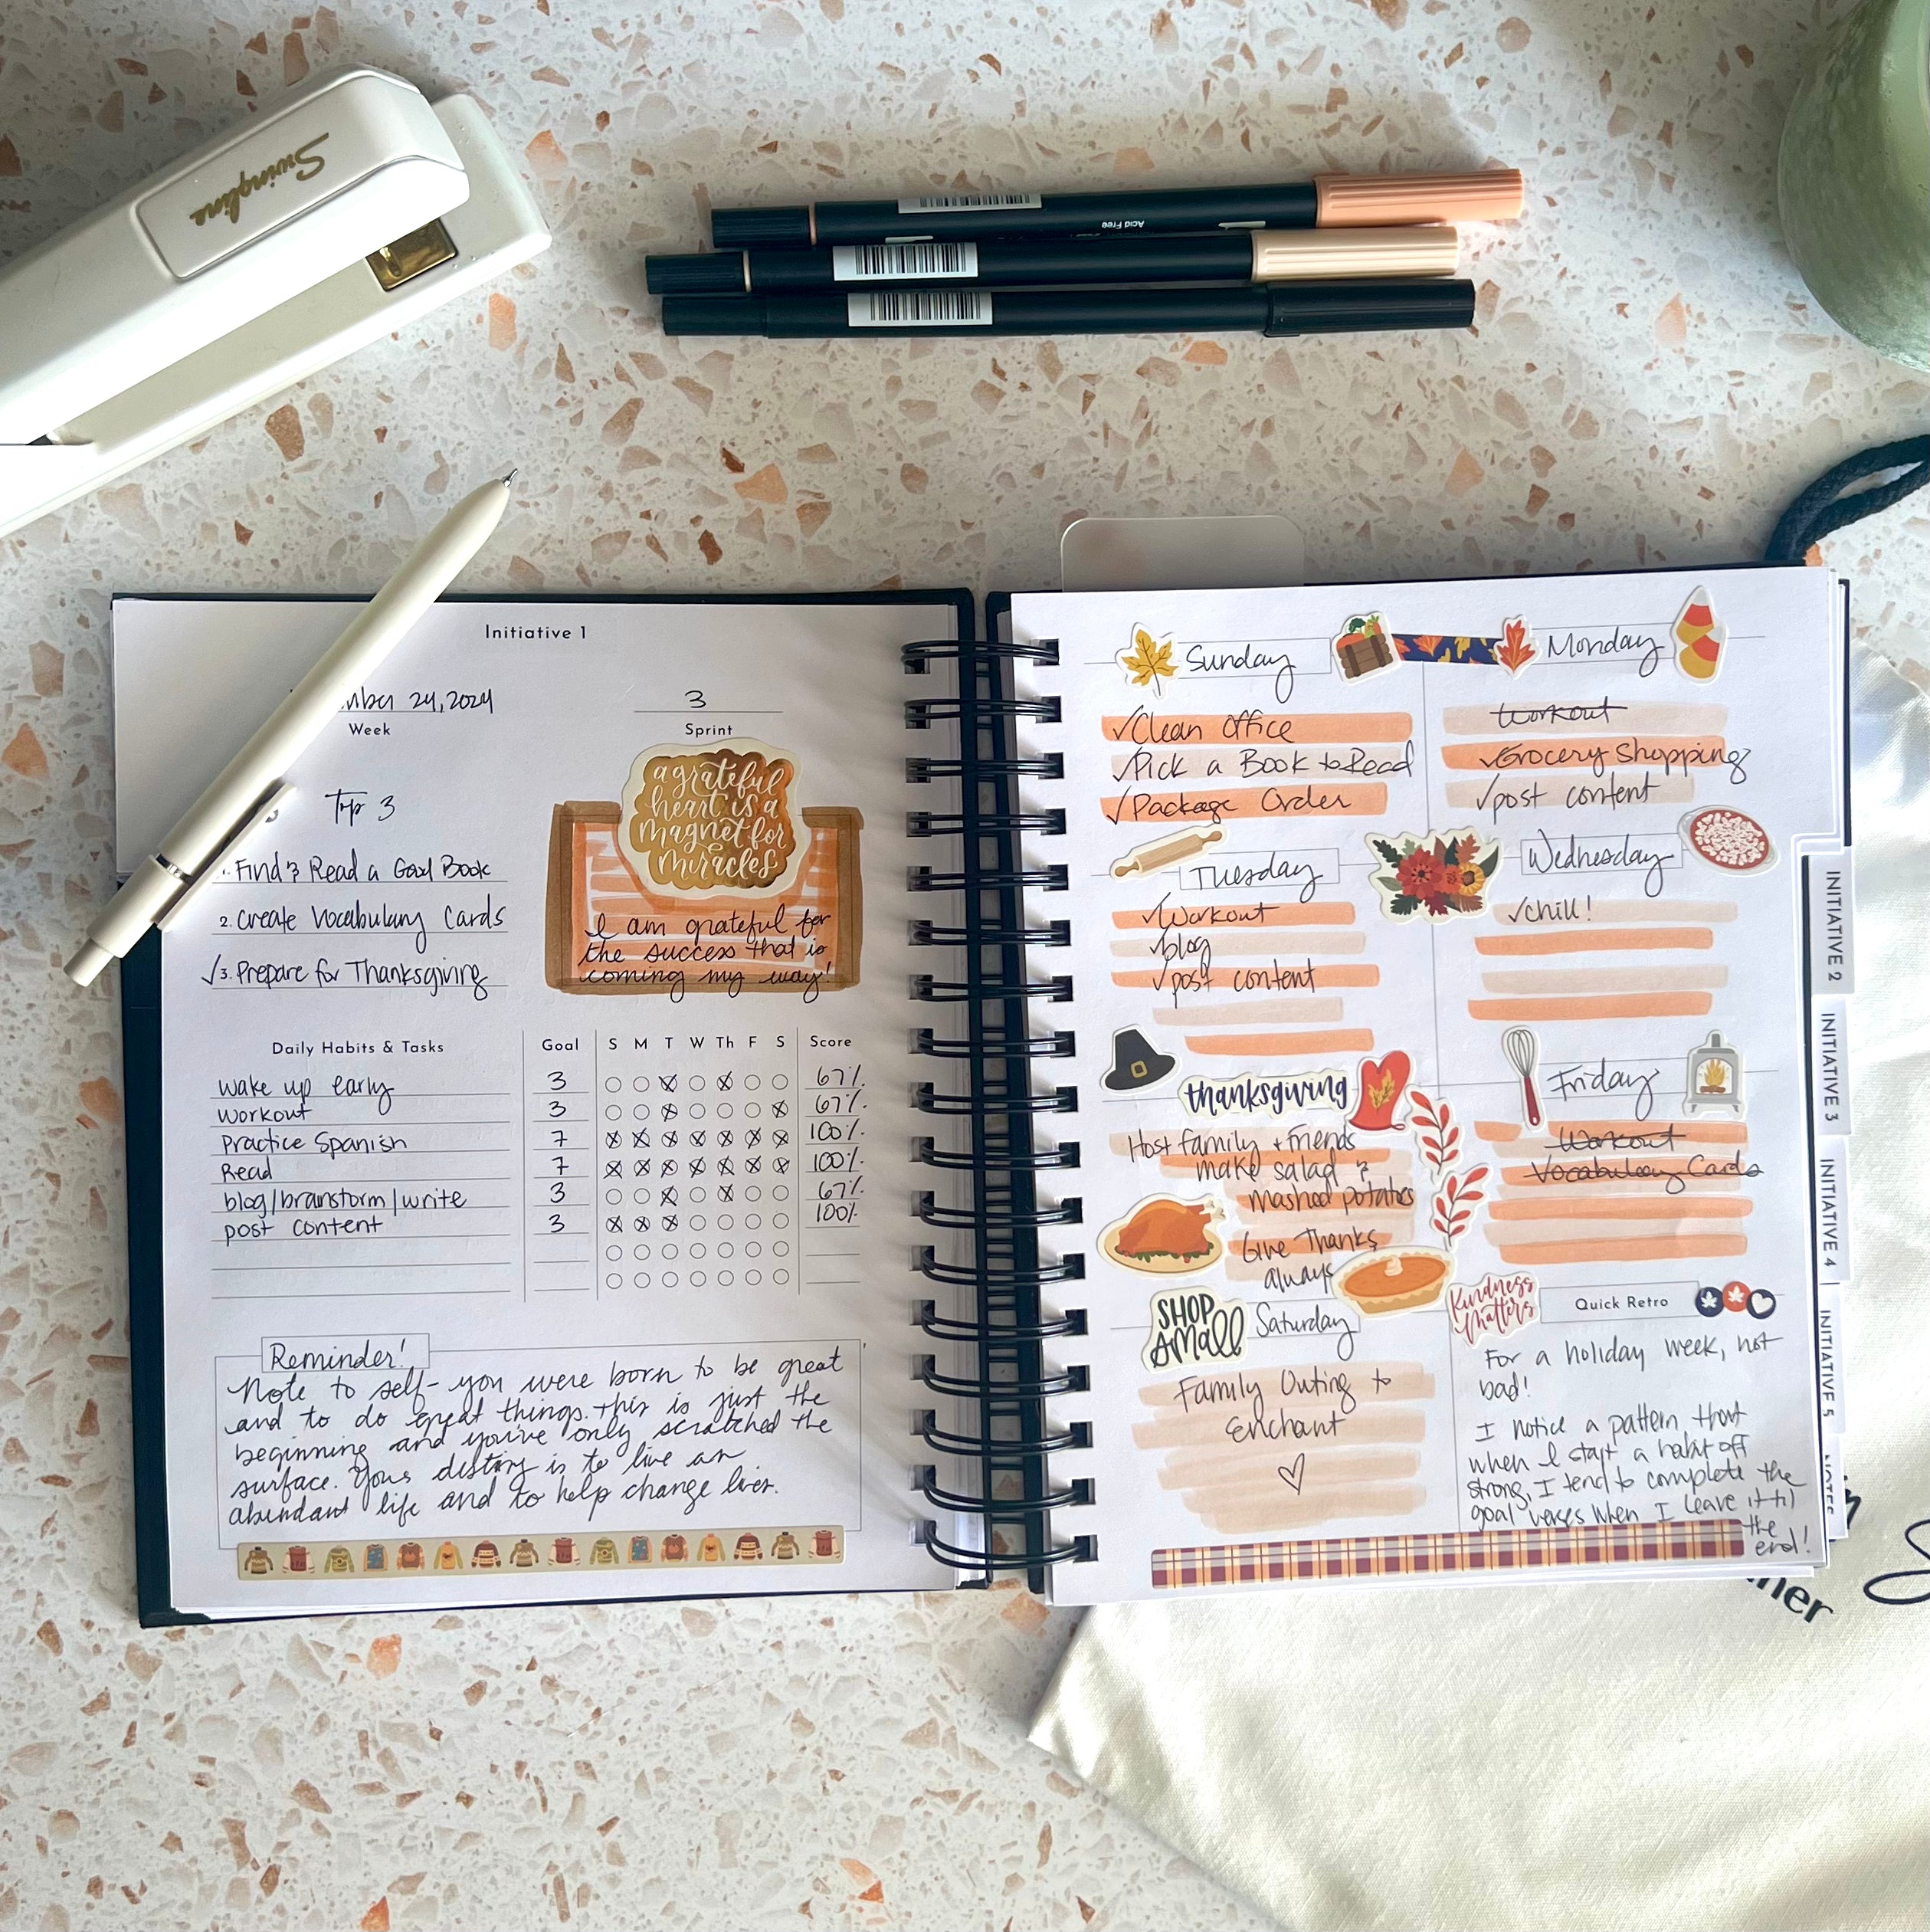 Swingline
Acid Free
Initiative 1
24, 2024
Week
3
Sprint
Top 3
1. Find & Read a Good Book
2. Create Vocabulary Cards
✓3. Prepare for Thanksgiving
a grateful
heart is a
magnet for
miracles
I am grateful for
the success that is
coming my way!
Daily Habits & Tasks Goal S M T W Th F S Score
wake up early 3 67%
workout 3 67%
Practice Spanish 7 100%
Read 7 100%
blog/brainstorm/write 3 67%
post content 3 100%
Reminder!
Note to self- you were born to be great
and to do great things. This is just the
beginning and you've only scratched the
surface. Your destiny is to live an
abundant life and to help change lives.
Sunday
✓Clean Office
✓Pick a Book to Read
✓Package Order
Monday
Workout
✓Grocery Shopping
✓post content
Tuesday
✓Workout
✓blog
✓post content
Wednesday
✓chill!
thanksgiving
Host family + friends
make salad &
mashed potatoes
Give Thanks
always
Friday
Workout
Vocabulary Cards
SHOP
SMALL
Saturday
Family Outing to
Enchant
Kindness
Matters
Quick Retro
For a holiday week, not
bad!
I notice a pattern that
when I start a habit off
strong, I tend to complete the
goal verses when I leave it til
the
end!
INITIATIVE 2
INITIATIVE 3
INITIATIVE 4
INITIATIVE 5
NOTES